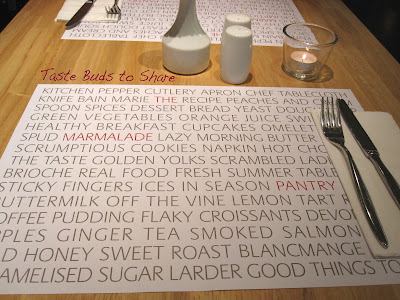 TABLECLOTH
Taste Buds to Share
KITCHEN PEPPER CUTLERY APRON CHEF TABLECLOTH
KNIFE BAIN MARIE THE RECIPE PEACHES AND
SPOON SPICES DESSERT BREAD YEAST
GREEN VEGETABLES ORANGE JUICE
HEALTHY BREAKFAST CUPCAKES OMELET
SPUD MARMALADE LAZY MORNING BUTTER
SCRUMPTIOUS COOKIES NAPKIN HOT
THE TASTE GOLDEN YOLKS SCRAMBLED
BRIOCHE REAL FOOD FRESH SUMMER TABLE
STICKY FINGERS ICES IN SEASON PANTRY
BUTTERMILK OFF THE VINE LEMON TART
COFFEE PUDDING FLAKY CROISSANTS
PLES GINGER TEA SMOKED SALMON
D HONEY SWEET ROAST BLANCMANGE
AMELISED SUGAR LARDER GOOD THINGS TO